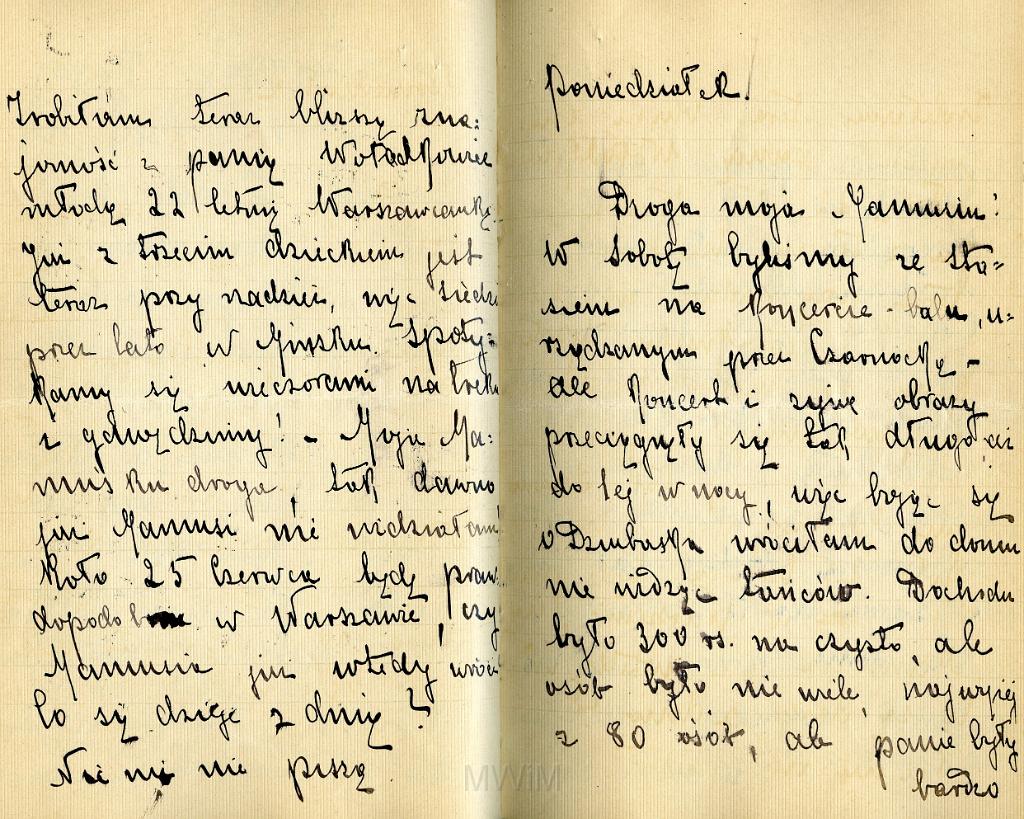 Zrobiłam teraz bliższą zna=
jomość z panią Wołodkowicz
młodą 22 letnią Warszawianką
Już z trzecim dzieckiem jest
teraz przy nadziei, więc siedzi
przez lato w Mińsku. Spoty=
kamy się wieczorami na treku
i gawędzimy! – Moja Ma=
muśku droga, tak dawno
już Mamusi nie widziałam!
Koło 25 Czerwca będę praw
dopodobnie w Warszawie, czy
Mamusia już wtedy wróci
Co się dzieje z
Nic mi nie piszą
Poniedziałek.
Droga moja Mamusiu!
W sobotę byliśmy ze Sta=
siem na koncercie-balu, u=
rządzanym przez Czarnocką –
ale koncert i żywe obrazy
przeciągnęły się tak długo, aż
do 1ej w nocy, więc bojąc się
o Dziubaska wróciłam do domu
nie widząc tańców. Dochodu
było 300 rs. na czysto, ale
osób było nie wiele, najwyżej
z 80 osób, ale panie były
bardzo
MWiM